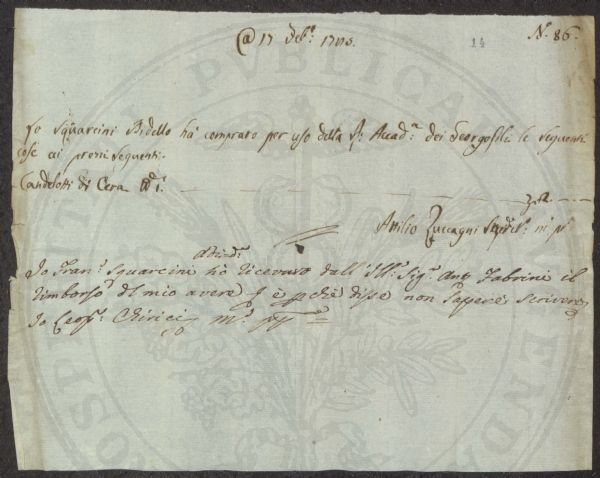 @ 17 Feb.º 1785.
14
N.º 86.
Io Squarcini Bidello hà comprato per uso della R: Accad.ª dei Georgofili le seguenti
cose ai prezzi seguenti.
Candelotti di Cera
Attilio Zuccagni m: p.ª
Adi d.º
Io Fran.º Squarcini hò ricevuto dall' Ill: Sig.º Ant. Fabrini il
rimborso del mio avere e disse non sapere scrivere
Io Chirici m.º pp.ª
PUBLICAE